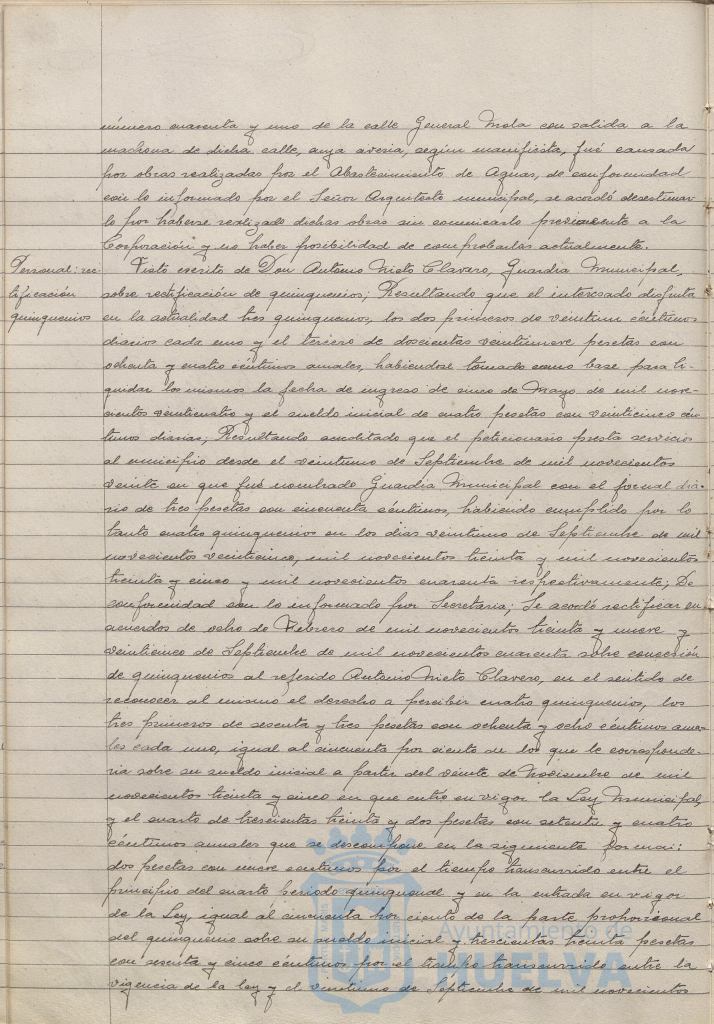 número cuarenta y uno de la calle General Mola con salida a la
machona de dicha calle, cuya avería, según manifiesta, fué causada
por obras realizadas por el Abastecimiento de Aguas, de conformidad
con lo informado por el Señor Arquitecto municipal, se acordó desestimar-
lo por haberse realizado dichas obras sin comunicarlo previamente a la
Corporación y no haber posibilidad de comprobarlas actualmente.
Personal: rec-
tificación
quinquenios
Visto escrito de Don Antonio Nieto Clavero, Guardia Municipal,
sobre rectificación de quinquenios; Resultando que el interesado disfruta
en la actualidad tres quinquenios, los dos primeros de veintiun céntimos
diarios cada uno y el tercero de doscientas veintinueve pesetas con
ochenta y cuatro céntimos anuales, habiéndose tomado como base para li-
quidar los mismos la fecha de ingreso de cinco de Mayo de mil nove-
cientos veinticuatro y el sueldo inicial de cuatro pesetas con veinticinco cén-
timos diarias; Resultando acreditado que el peticionario presta servicios
al municipio desde el veintiuno de Septiembre de mil novecientos
veinte en que fué nombrado Guardia Municipal con el jornal dia-
rio de tres pesetas con cincuenta céntimos, habiendo cumplido por lo
tanto cuatro quinquenios en los dias veintiuno de Septiembre de mil
novecientos veinticinco, mil novecientos treinta y mil novecientos
treinta y cinco y mil novecientos cuarenta respectivamente; De
conformidad con lo informado por Secretaria; Se acordó rectificar sus
acuerdos de ocho de Febrero de mil novecientos treinta y nueve y
veinticinco de Septiembre de mil novecientos cuarenta sobre concesión
de quinquenios al referido Antonio Nieto Clavero, en el sentido de
reconocer al mismo el derecho a percibir cuatro quinquenios, los
tres primeros de sesenta y tres pesetas con ochenta y ocho céntimos anua-
les cada uno, igual al cincuenta por ciento de los que le corresponde-
ria sobre su sueldo inicial a partir del veinte de Noviembre de mil
novecientos treinta y cinco en que entró en vigor la Ley Municipal,
y el cuarto de trescientas treinta y dos pesetas con setenta y cuatro
céntimos anuales que se descompone en la siguiente forma:
dos pesetas con nueve céntimos por el tiempo transcurrido entre el
principio del cuarto periodo quinquenal y en la entrada en vigor
de la Ley, igual al cincuenta por ciento de la parte proporcional
del quinquenio sobre su sueldo inicial y trescientas treinta pesetas
con sesenta y cinco céntimos por el tiempo transcurrido entre la
vigencia de la ley y el veintiuno de Septiembre de mil novecientos
Ayuntamiento de
HUELVA